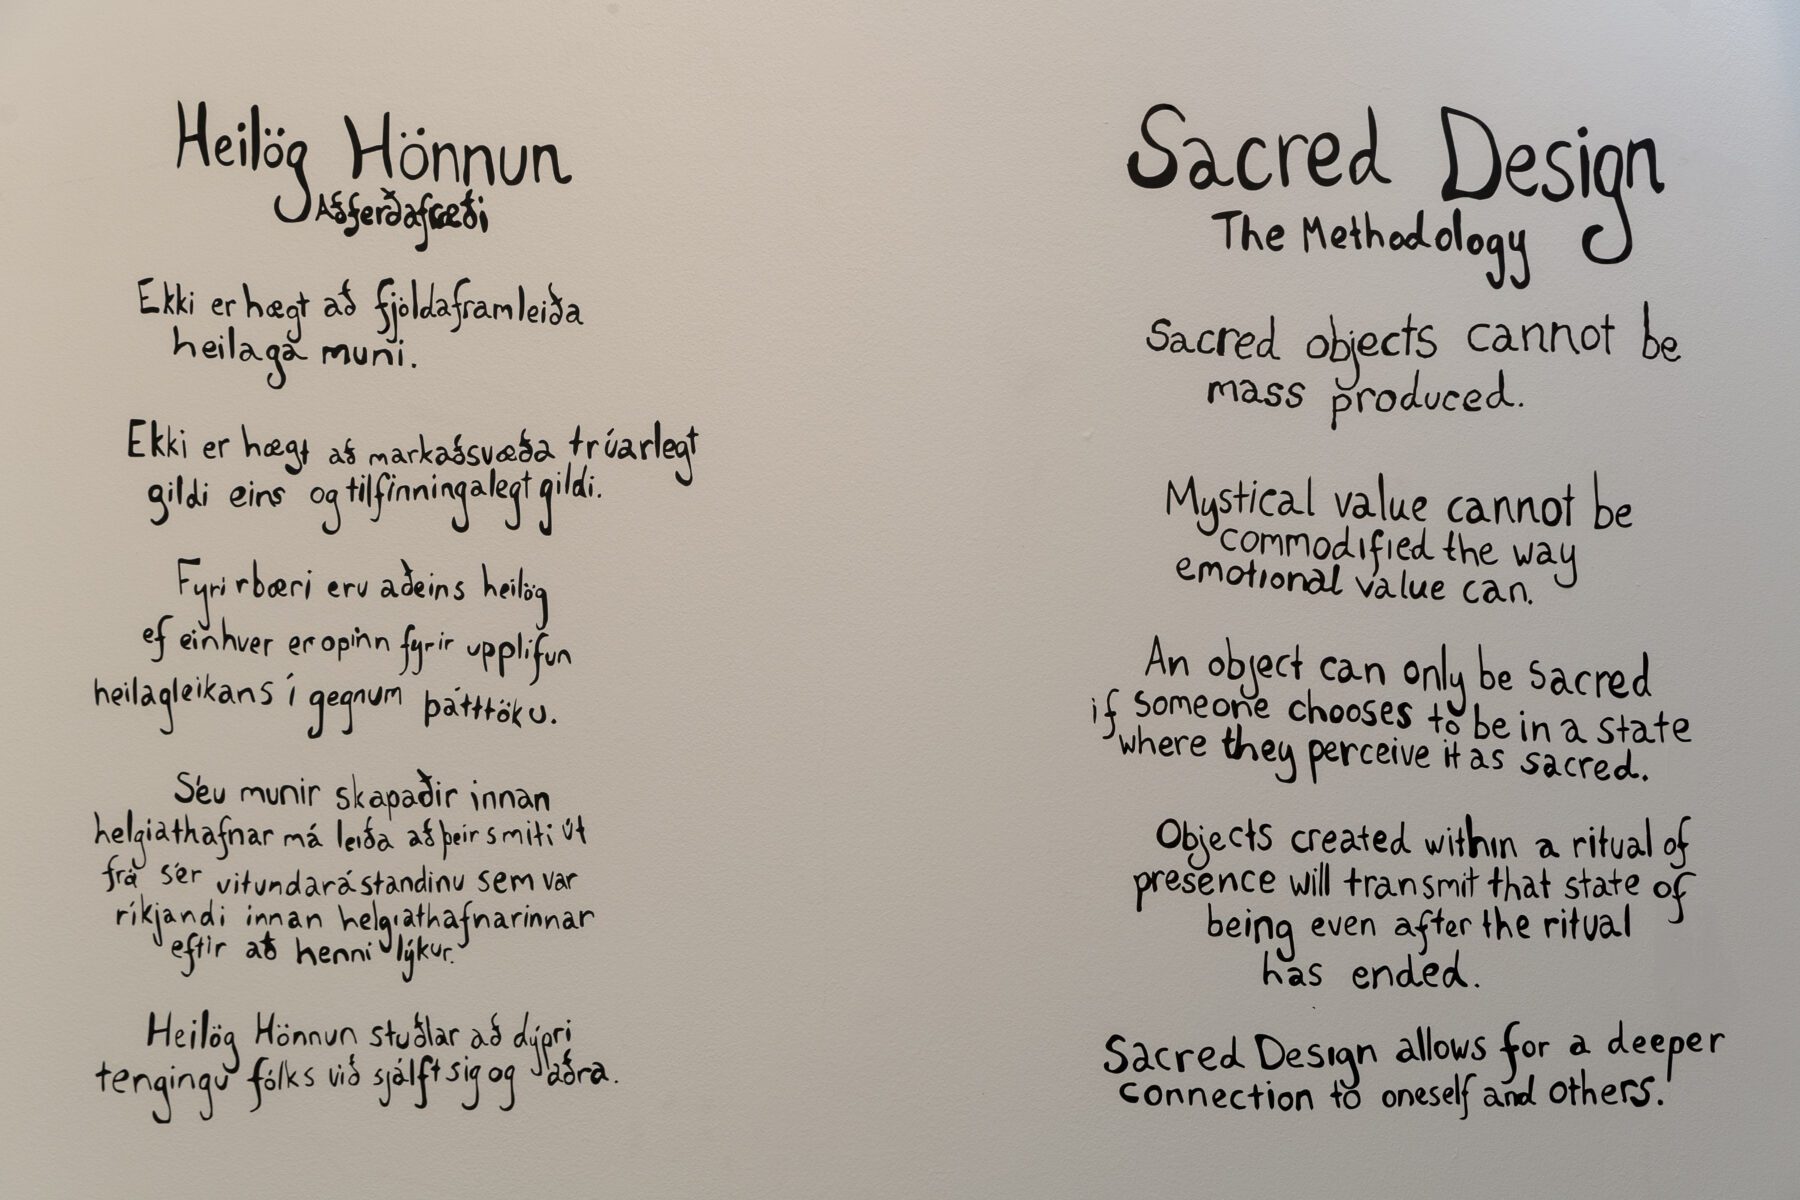 Heilög Hönnun
Aðferðafræði
Ekki er hægt að fjöldaframleiða
heilaga muni.
Ekki er hægt að markaðsvæða trúarlegt
gildi eins og tilfinningalegt gildi.
Fyrirbæri eru aðeins heilög
ef einhver er opinn fyrir upplifun
heilagleikans í gegnum þátttöku.
Séu munir skapaðir innan
helgiathafnar má leiða að þeir smiti út
frá sér vitundarástandinu sem var
ríkjandi innan helgiathafnarinnar
eftir að henni lýkur.
Heilög Hönnun stuðlar að dýpri
tengingu fólks við sjálft sig og aðra.
Sacred Design
The Methodology
Sacred objects cannot be
mass produced.
Mystical value cannot be
commodified the way
emotional value can.
An object can only be sacred
if someone chooses to be in a state
where they perceive it as sacred.
Objects created within a ritual of
presence will transmit that state of
being even after the ritual
has ended.
Sacred Design allows for a deeper
connection to oneself and others.